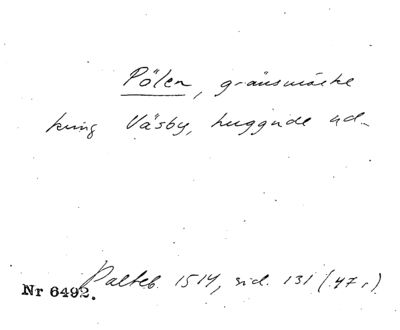 Pölen, gränsmärke
kring Väsby, huggude ud-
Palteb. 1514, sid. 131 (47,)
Nr 6492.